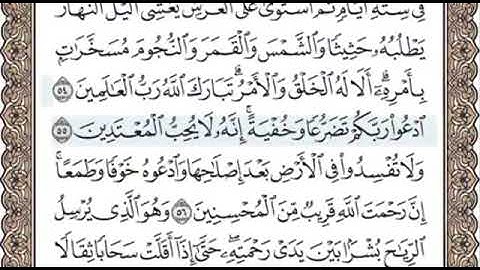 فِى سِتَّةِ أَيَّامٍ ثُمَّ ٱسْتَوَىٰ عَلَى ٱلْعَرْشِ يُغْشِى ٱلَّيْلَ ٱلنَّهَارَ
يَطْلُبُهُۥ حَثِيثًا وَٱلشَّمْسَ وَٱلْقَمَرَ وَٱلنُّجُومَ مُسَخَّرَٰتٍۭ
بِأَمْرِهِۦٓۗ أَلَا لَهُ ٱلْخَلْقُ وَٱلْأَمْرُۗ تَبَارَكَ ٱللَّهُ رَبُّ ٱلْعَٰلَمِينَ ٥٤
ٱدْعُوا۟ رَبَّكُمْ تَضَرُّعًا وَخُفْيَةًۚ إِنَّهُۥ لَا يُحِبُّ ٱلْمُعْتَدِينَ ٥٥
وَلَا تُفْسِدُوا۟ فِى ٱلْأَرْضِ بَعْدَ إِصْلَٰحِهَا وَٱدْعُوهُ خَوْفًا وَطَمَعًاۚ
إِنَّ رَحْمَتَ ٱللَّهِ قَرِيبٌ مِّنَ ٱلْمُحْسِنِينَ ٥٦ وَهُوَ ٱلَّذِى يُرْسِلُ
ٱلرِّيَٰحَ بُشْرًۢا بَيْنَ يَدَىْ رَحْمَتِهِۦۖ حَتَّىٰٓ إِذَآ أَقَلَّتْ سَحَابًا ثِقَالًا